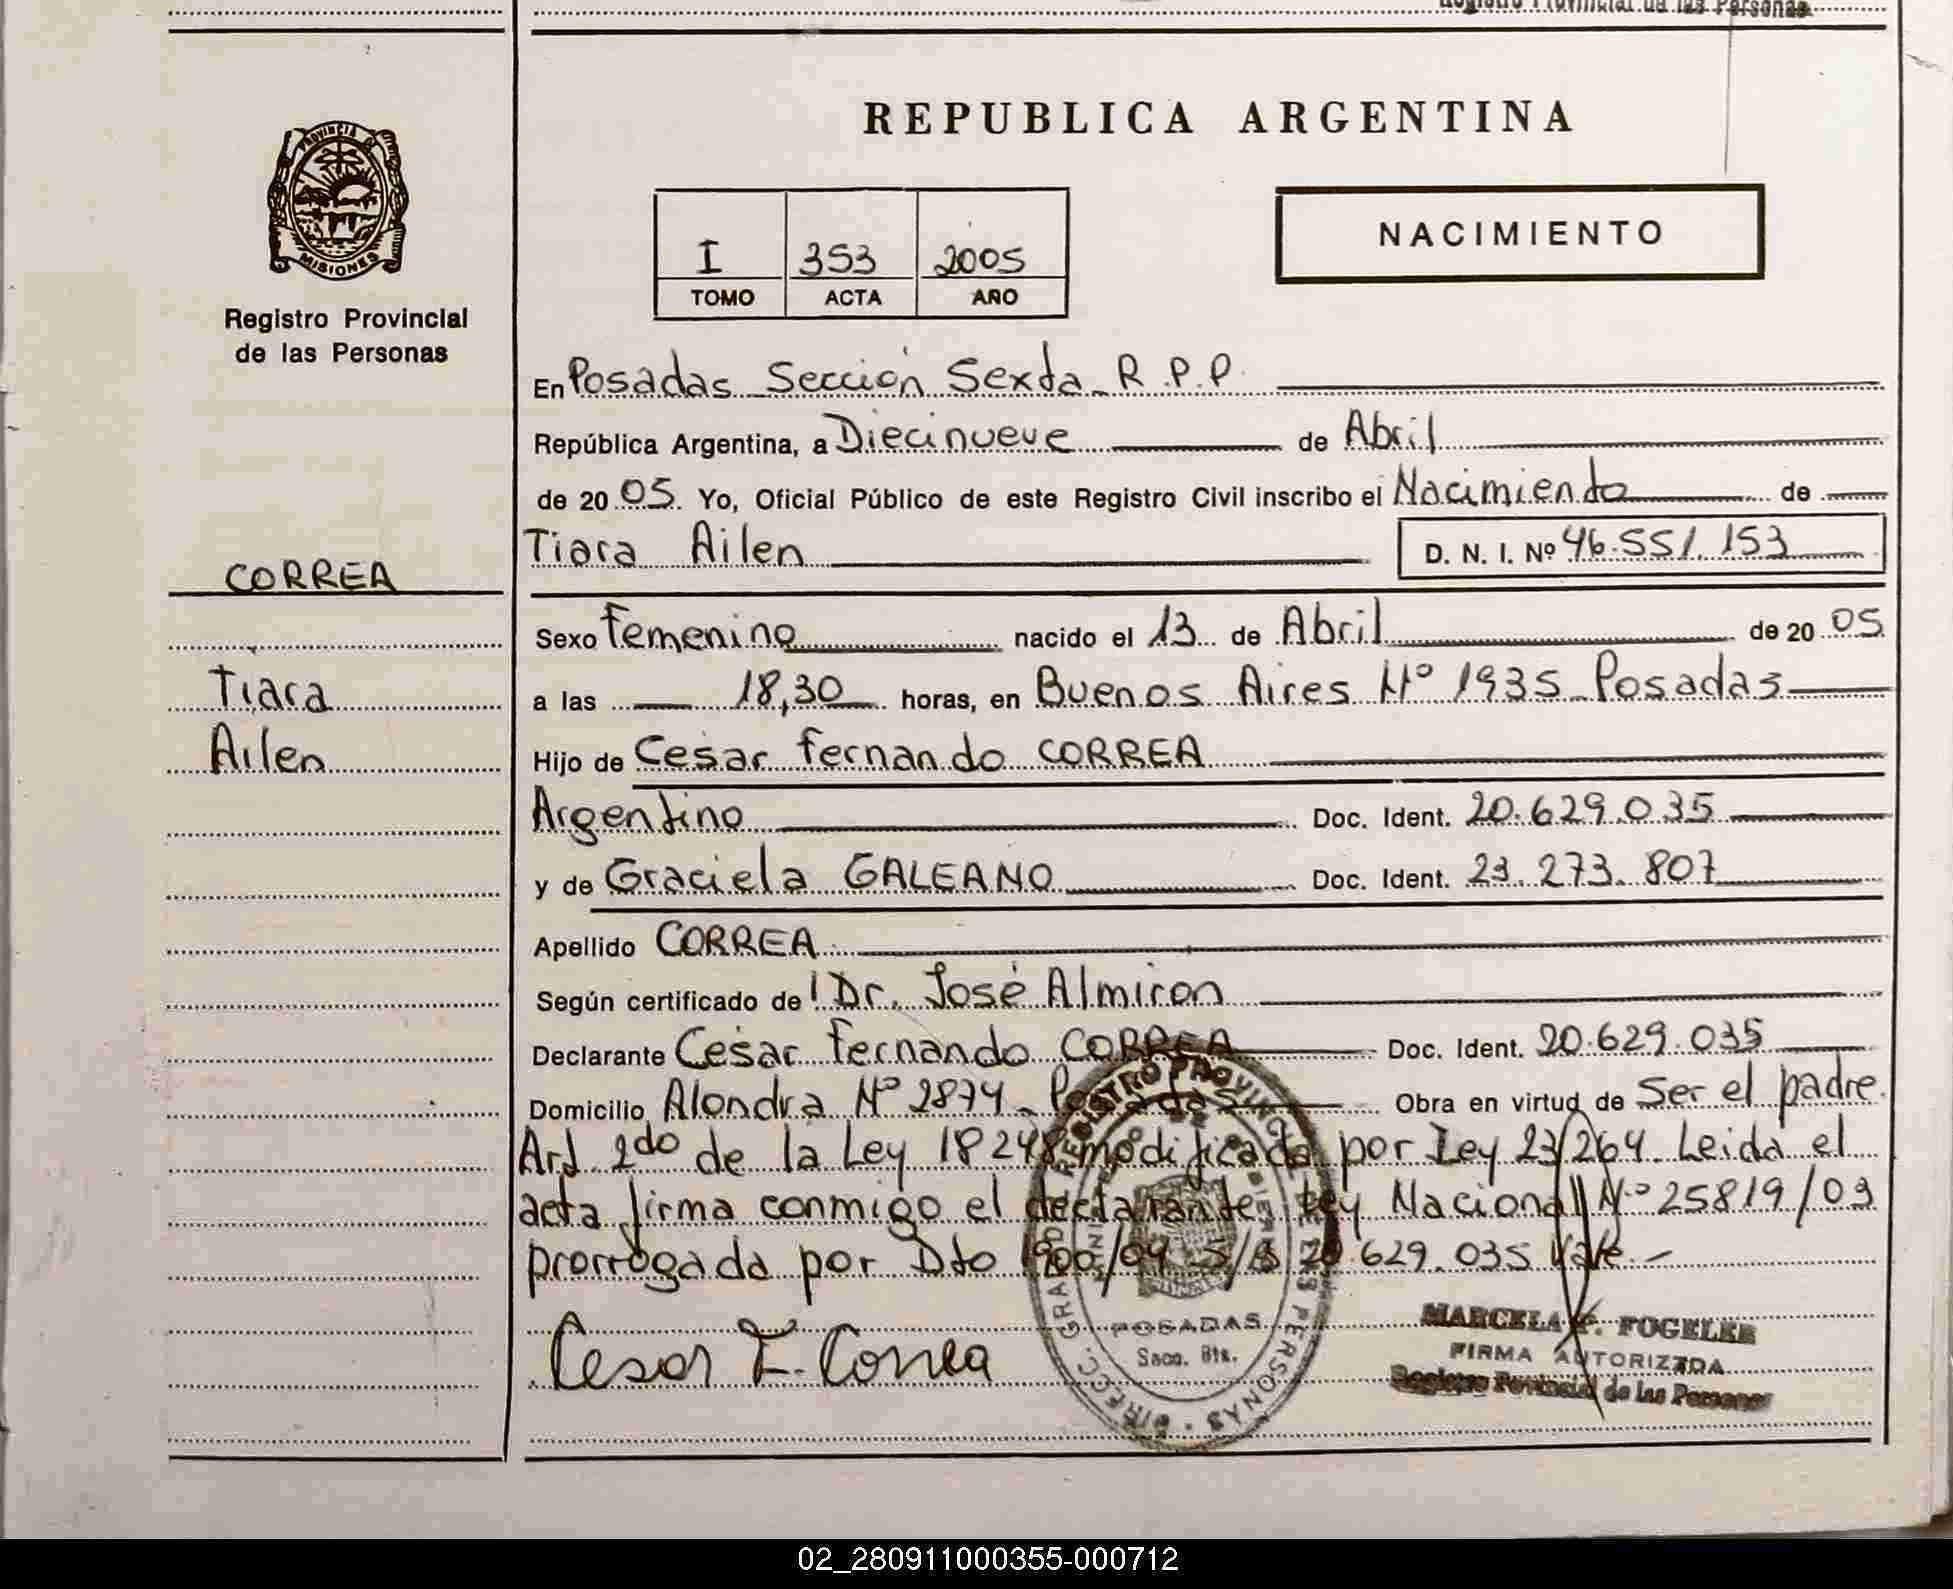 Registro Provincial de las Personas
REPUBLICA ARGENTINA
PROVINCIA DE
MISIONES
Registro Provincial
de las Personas
I 353 2005
TOMO ACTA AÑO
NACIMIENTO
En Posadas Sección Sexta R.P.P.
República Argentina, a Diecinueve de Abril
de 2005. Yo, Oficial Público de este Registro Civil inscribo el Nacimiento de
Tiara Ailen D. N. I. Nº 46.551.153
CORREA
Tiara
Ailen
Sexo Femenino nacido el 13 de Abril de 2005
a las 18,30 horas, en Buenos Aires Nº 1935 Posadas
Hijo de Cesar Fernando CORREA
Argentino Doc. Ident. 20.629.035
y de Graciela GALEANO Doc. Ident. 23.273.807
Apellido CORREA
Según certificado de Dr. José Almiron
Declarante Cesar Fernando CORREA Doc. Ident. 20.629.035
Domicilio Alondra Nº 2874 - Posadas Obra en virtud de Ser el padre.
Art 2do de la Ley 18248 modificada por Ley 23264. Leida el
acta firma conmigo el declarante Ley Nacional Nº 25819/03
prorrogada por Dto 1900/04 S/B 20.629.035 Vale.-
Cesar F. Correa
REGISTRO PROVINCIAL DE LAS PERSONAS
POSADAS
MARCELA F. FOGELER
FIRMA AUTORIZADA
Registro Provincial de las Personas
02_280911000355-000712